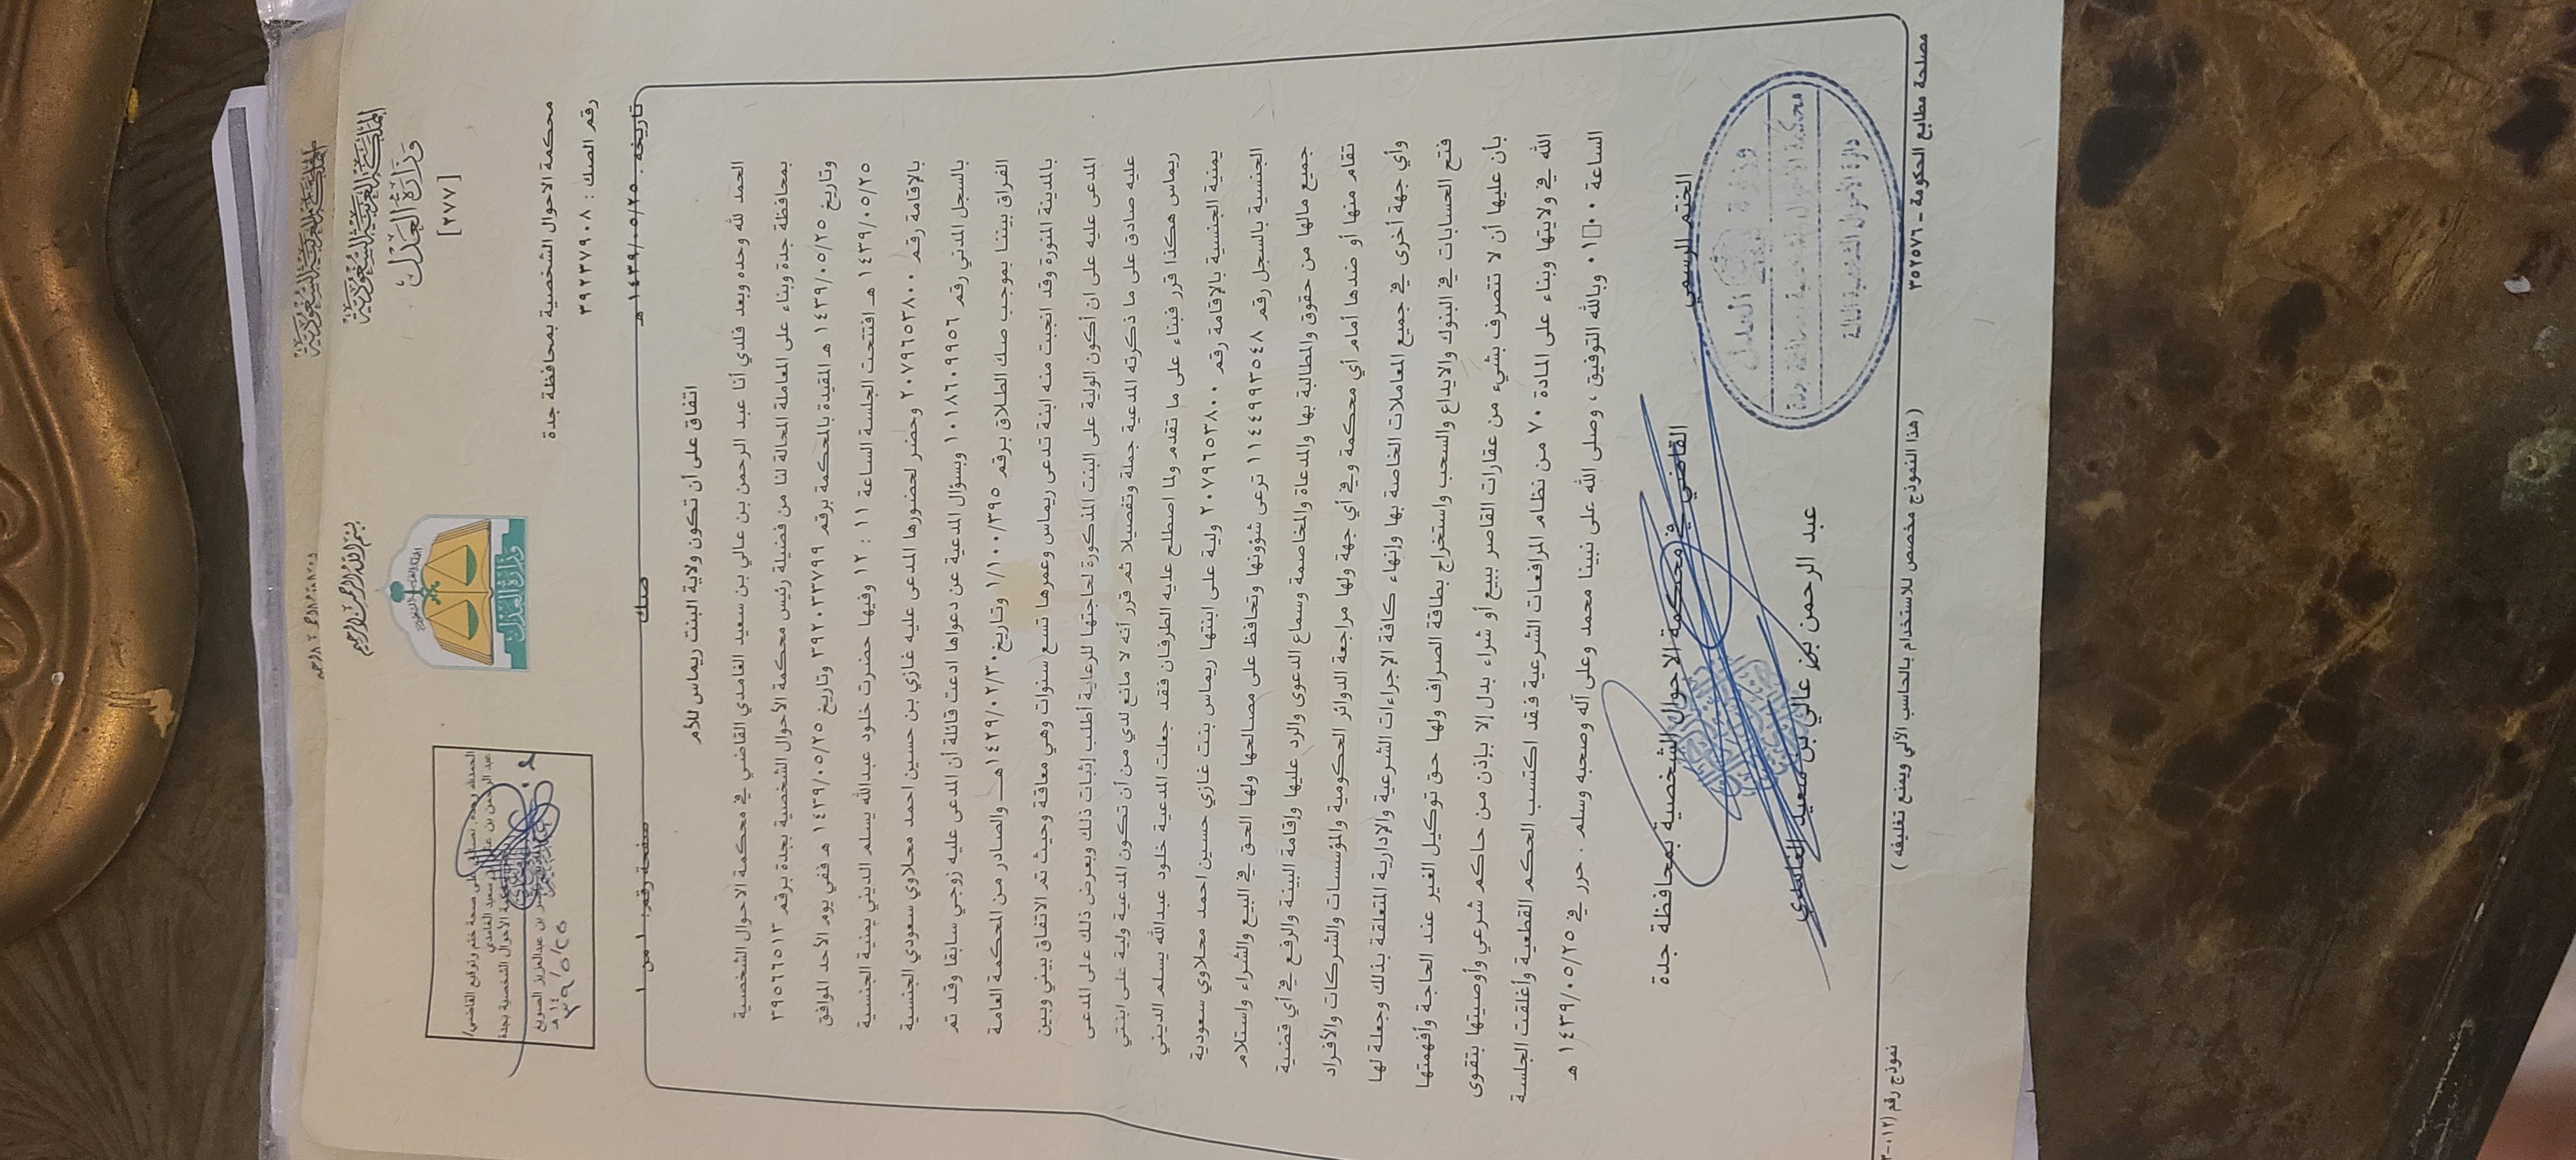 بسم الله الرحمن الرحيم
المملكة العربية السعودية
وزارة العدل
[٢٧٧]
محكمة الاحوال الشخصية بمحافظة جدة
رقم الصك : ٣٩٢٣٧٩٠٨
تاريخه ١٤٣٩/٠٥/٢٥هـ
صك
صفحة رقم: ١ من ١
وزارة العدل
الحمدلله وحده، نصادق على صحة ختم وتوقيع القاضي/
عبد الرحمن بن سعيد الغامدي
محكمة الأحوال الشخصية بجدة
بن عبدالعزيز الصويغ
٣٩/٥/٢٥ ١٤هـ
اتفاق على أن تكون ولاية البنت ريماس للأم
الحمد لله وحده وبعد فلدي أنا عبد الرحمن بن عالي بن سعيد الغامدي القاضي في محكمة الاحوال الشخصية
بمحافظة جدة وبناء على المعاملة المحالة لنا من فضيلة رئيس محكمة الأحوال الشخصية بجدة برقم ٣٩٥٦٦٥١٣
وتاريخ ١٤٣٩/٠٥/٢٥ هـ المقيدة بالمحكمة برقم ٣٩٢٠٣٣٧٩٩ وتاريخ ١٤٣٩/٠٥/٢٥ هـ ففي يوم الأحد الموافق
١٤٣٩/٠٥/٢٥ هـ افتتحت الجلسة الساعة ١١ : ١٢ وفيها حضرت خلود عبدالله يسلم الديني يمنية الجنسية
بالإقامة رقم ٢٠٧٩٦٥٣٨٠٠ وحضر لحضورها المدعى عليه غازي بن حسين احمد محلاوي سعودي الجنسية
بالسجل المدني رقم ١٠١٨٦٠٩٩٥٦ وبسؤال المدعية عن دعواها ادعت قائلة أن المدعى عليه زوجي سابقا وقد تم
الفراق بيننا بموجب صك الطلاق برقم ١/١٠٠/٣٩٥ وتاريخ١٤٢٩/٠٢/٣٠هـ والصادر من المحكمة العامة
بالمدينة المنورة وقد انجبت منه ابنة تدعى ريماس وعمرها تسع سنوات وهي معاقة وحيث تم الاتفاق بيني وبين
المدعى عليه على ان أكون الولية على البنت المذكورة لحاجتها للرعاية أطلب إثبات ذلك وبعرض ذلك على المدعى
عليه صادق على ما ذكرته المدعية جملة وتفصيلا ثم قرر أنه لا مانع لدي من أن تكون المدعية ولية على ابنتي
ريماس هكذا قرر فبناء على ما تقدم ولما اصطلح عليه الطرفان فقد جعلت المدعية خلود عبدالله يسلم الديني
يمنية الجنسية بالإقامة رقم ٢٠٧٩٦٥٣٨٠٠ ولية على ابنتها ريماس بنت غازي حسين احمد محلاوي سعودية
الجنسية بالسجل رقم ١١٤٤٩٩٣٥٤٨ ترعى شؤونها وتحافظ على مصالحها ولها الحق في البيع والشراء واستلام
جميع مالها من حقوق والمطالبة بها والمدعاة والمخاصمة وسماع الدعوى والرد عليها وإقامة البينة والرفع في أي قضية
تقام منها أو ضدها أمام أي محكمة وفي أي جهة ولها مراجعة الدوائر الحكومية والمؤسسات والشركات والأفراد
وأي جهة أخرى في جميع المعاملات الخاصة بها وإنهاء كافة الإجراءات الشرعية والإدارية المتعلقة بذلك وجعلة لها
فتح الحسابات في البنوك والايداع والسحب واستخراج بطاقة الصراف ولها حق توكيل الغير عند الحاجة وأفهمتها
بأن عليها أن لا تتصرف بشيء من عقارات القاصر ببيع أو شراء بدل إلا بإذن من حاكم شرعي وأوصيتها بتقوى
الله في ولايتها وبناء على المادة ٧٠ من نظام المرافعات الشرعية فقد اكتسب الحكم القطعية وأغلقت الجلسة
الساعة ٠٠ ٠١ وبالله التوفيق ، وصلى الله على نبينا محمد وعلى آله وصحبه وسلم . حرر في ١٤٣٩/٠٥/٢٥ هـ
الختم الرسمي
القاضي في محكمة الاحوال الشخصية بمحافظة جدة
عبد الرحمن بن عالي بن سعيد الغامدي
وزارة العدل
محكمة الأحوال الشخصية بمحافظة جدة
دائرة الأحوال الشخصية الثالثة
مصلحة مطابع الحكومة - ٣٥٢٥٧٦
(هذا النموذج مخصص للاستخدام بالحاسب الآلي ويمنع تغليفه )
نموذج رقم (١٢-٠